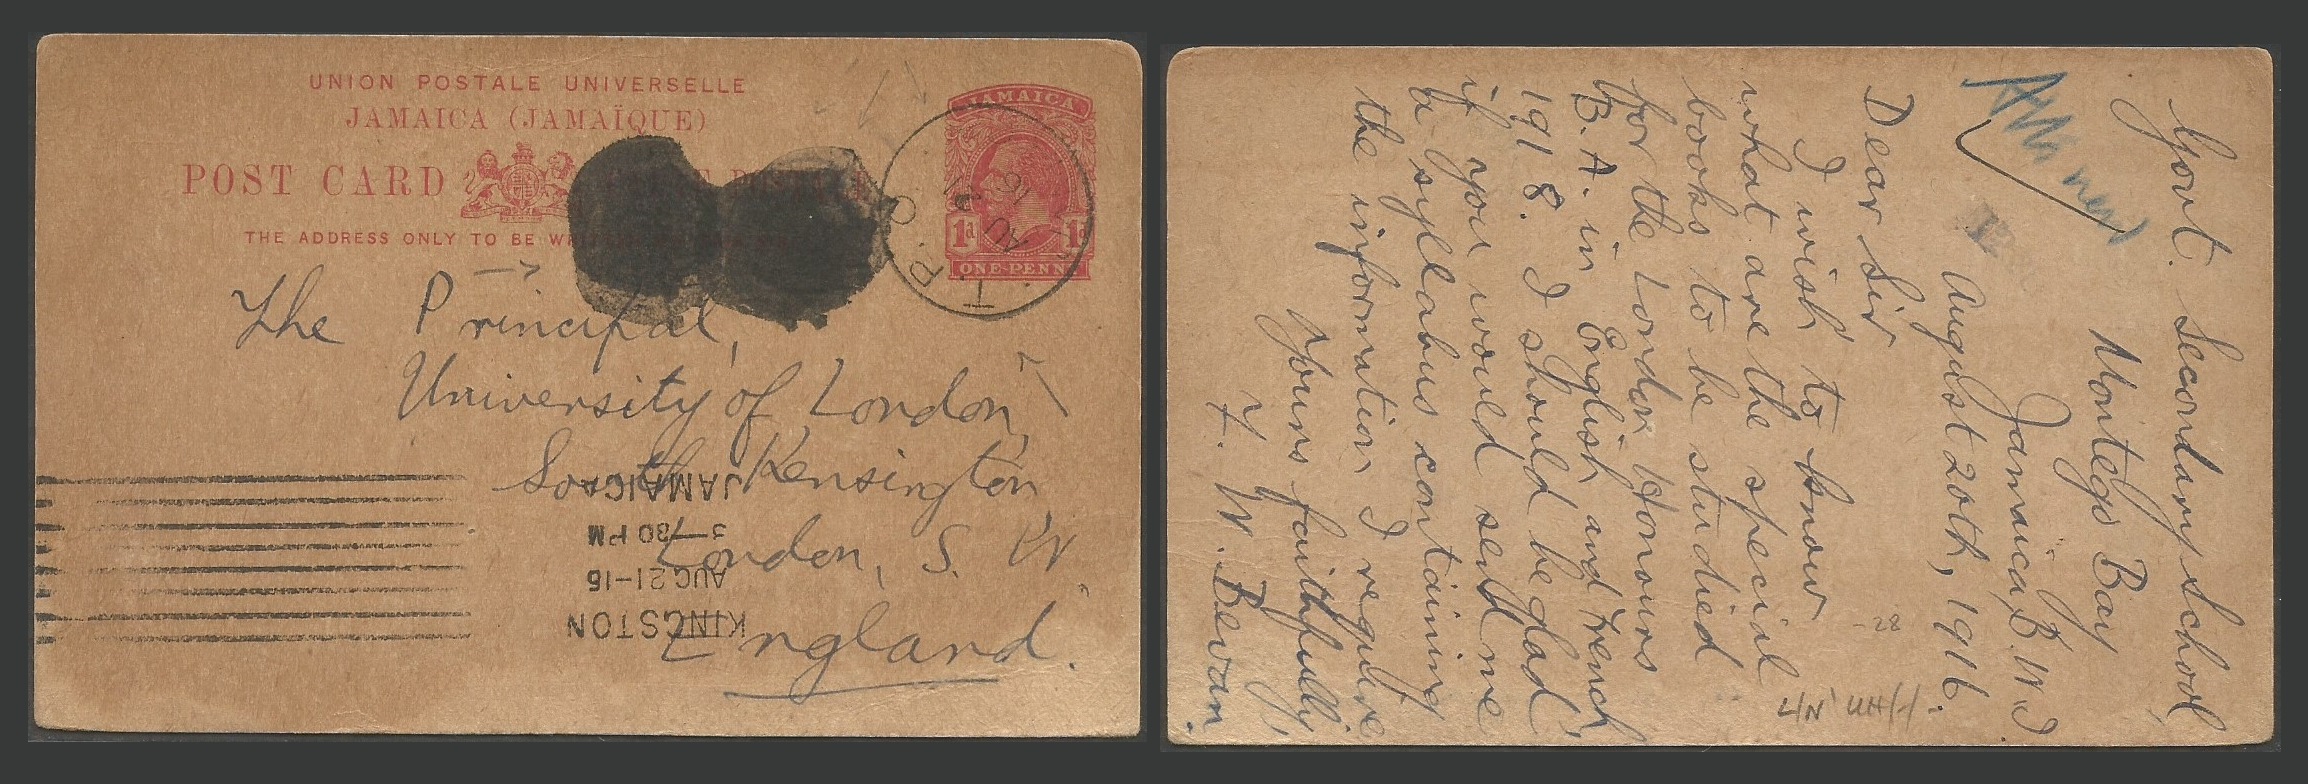 UNION POSTALE UNIVERSELLE
JAMAICA (JAMAÏQUE)
POST CARD
THE ADDRESS ONLY TO BE
JAMAICA
1d 1d
ONE PENNY
T. P. O.
AU 21
16
The Principal,
University of London,
South Kensington,
London, S. W.
England.
KINGSTON
AUG 21-16
3-30 PM
JAMAICA
Govt. Secondary School,
Montego Bay
Jamaica, B. W. I.
August 20th, 1916.
Dear Sir
I wish to know
what are the special
books to be studied
for the London Honours
B. A. in English and French,
1918. I should be glad
if you would send me
a syllabus containing
the information I require
Yours faithfully,
F. W. Bevan.
-28